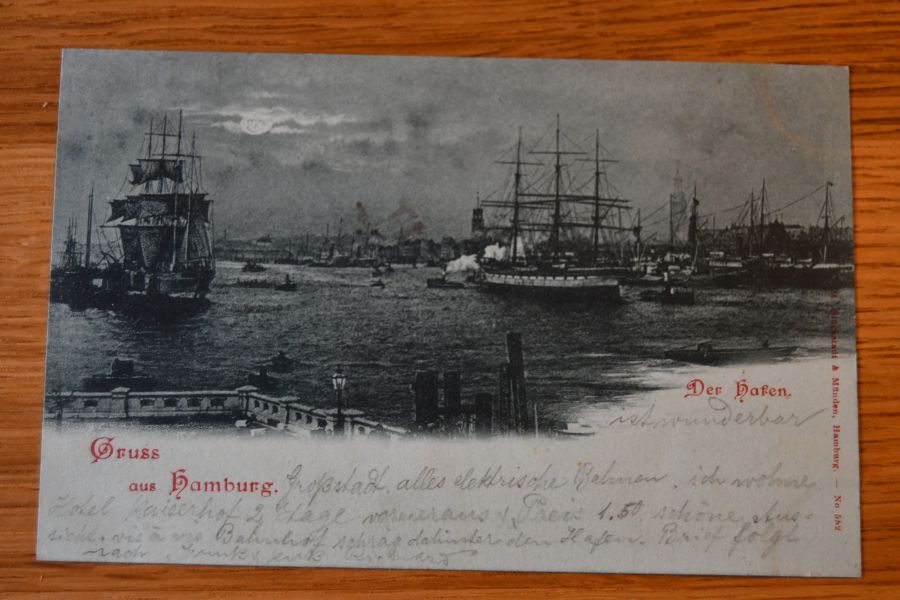 Der Hafen.
ist wunderbar
Gruss
aus Hamburg. Großstadt, alles elektrische Bahnen, ich wohne
Hotel 2 Etage vorneraus, Preis 1.50 schöne Aus-
sicht, vis à vis Bahnhof schrag dahinter den Hafen. Brief folgt
nach
& Münden, Hamburg. — No 552